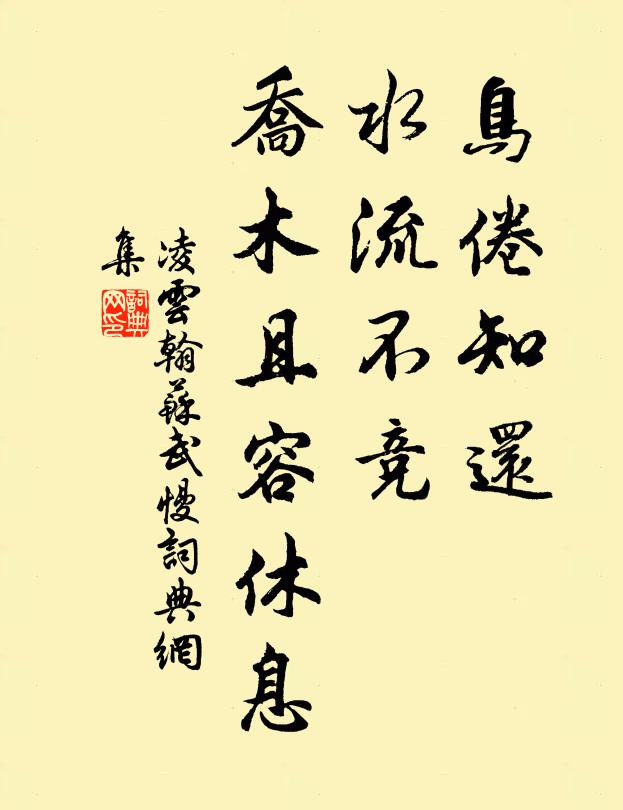 鳥倦知還
水流不競
喬木且容休息
凌雲翰蘇武慢詞典網
集
詞典
网印